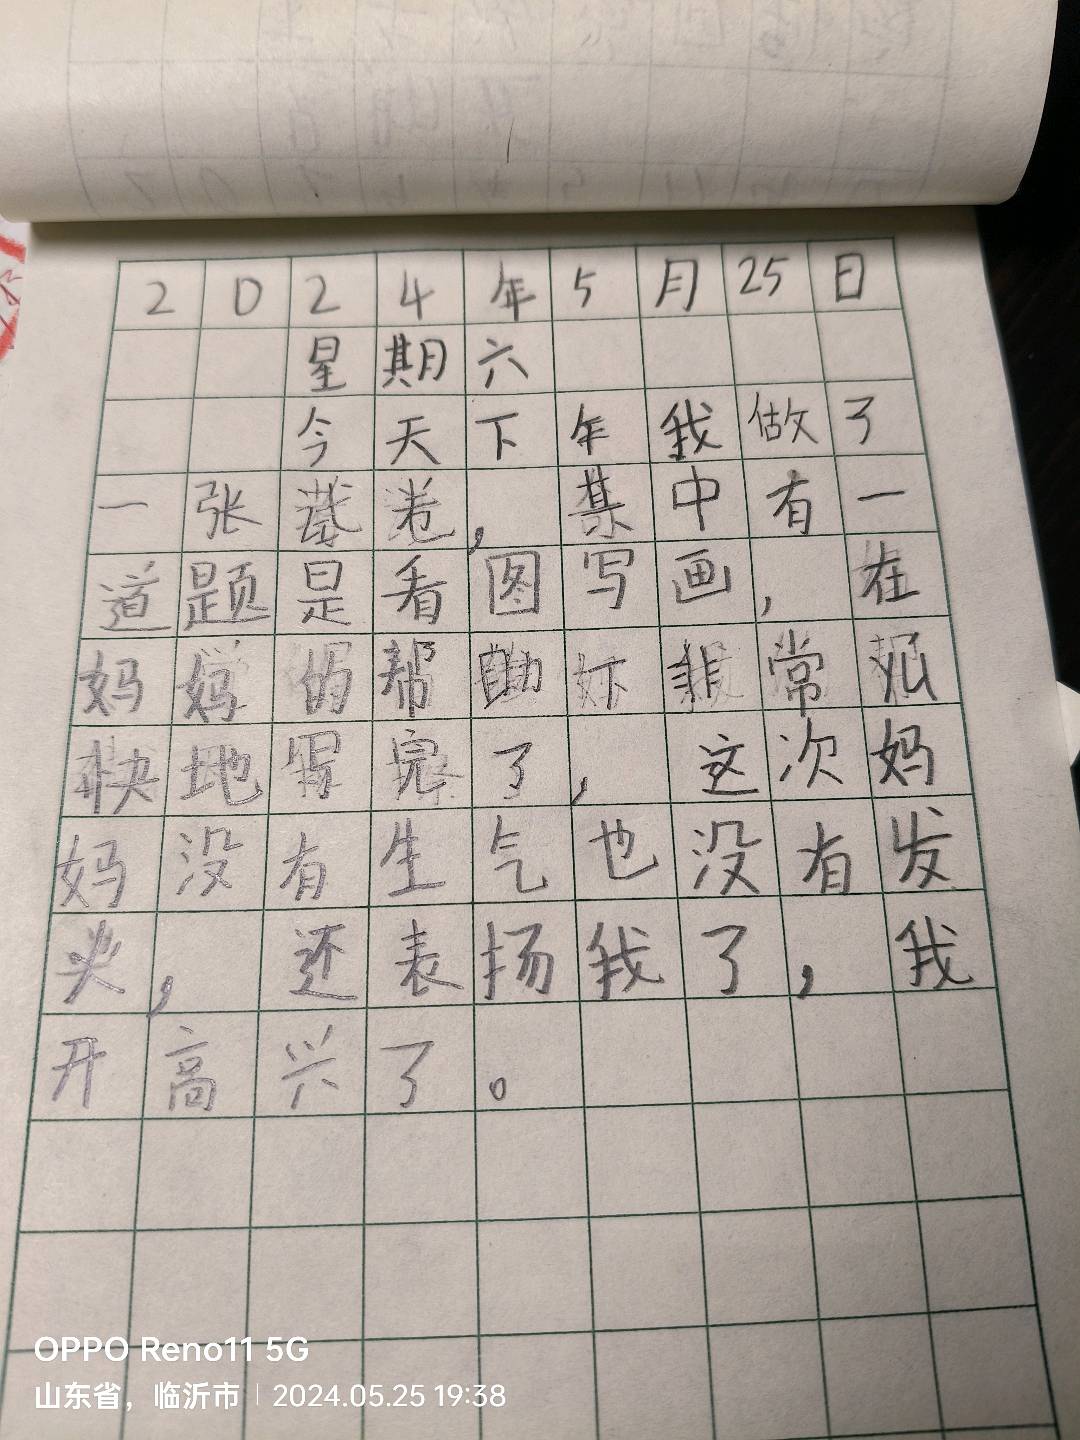 2024年5月25日
星期六
今天下年我做了
一张卷,其中有一
道题是看图写画,在
妈妈的帮助下非常
快地写完了,这次妈
妈没有生气也没有发
火,还表扬我了,我
开高兴了。
OPPO Reno11 5G
山东省，临沂市 | 2024.05.25 19:38